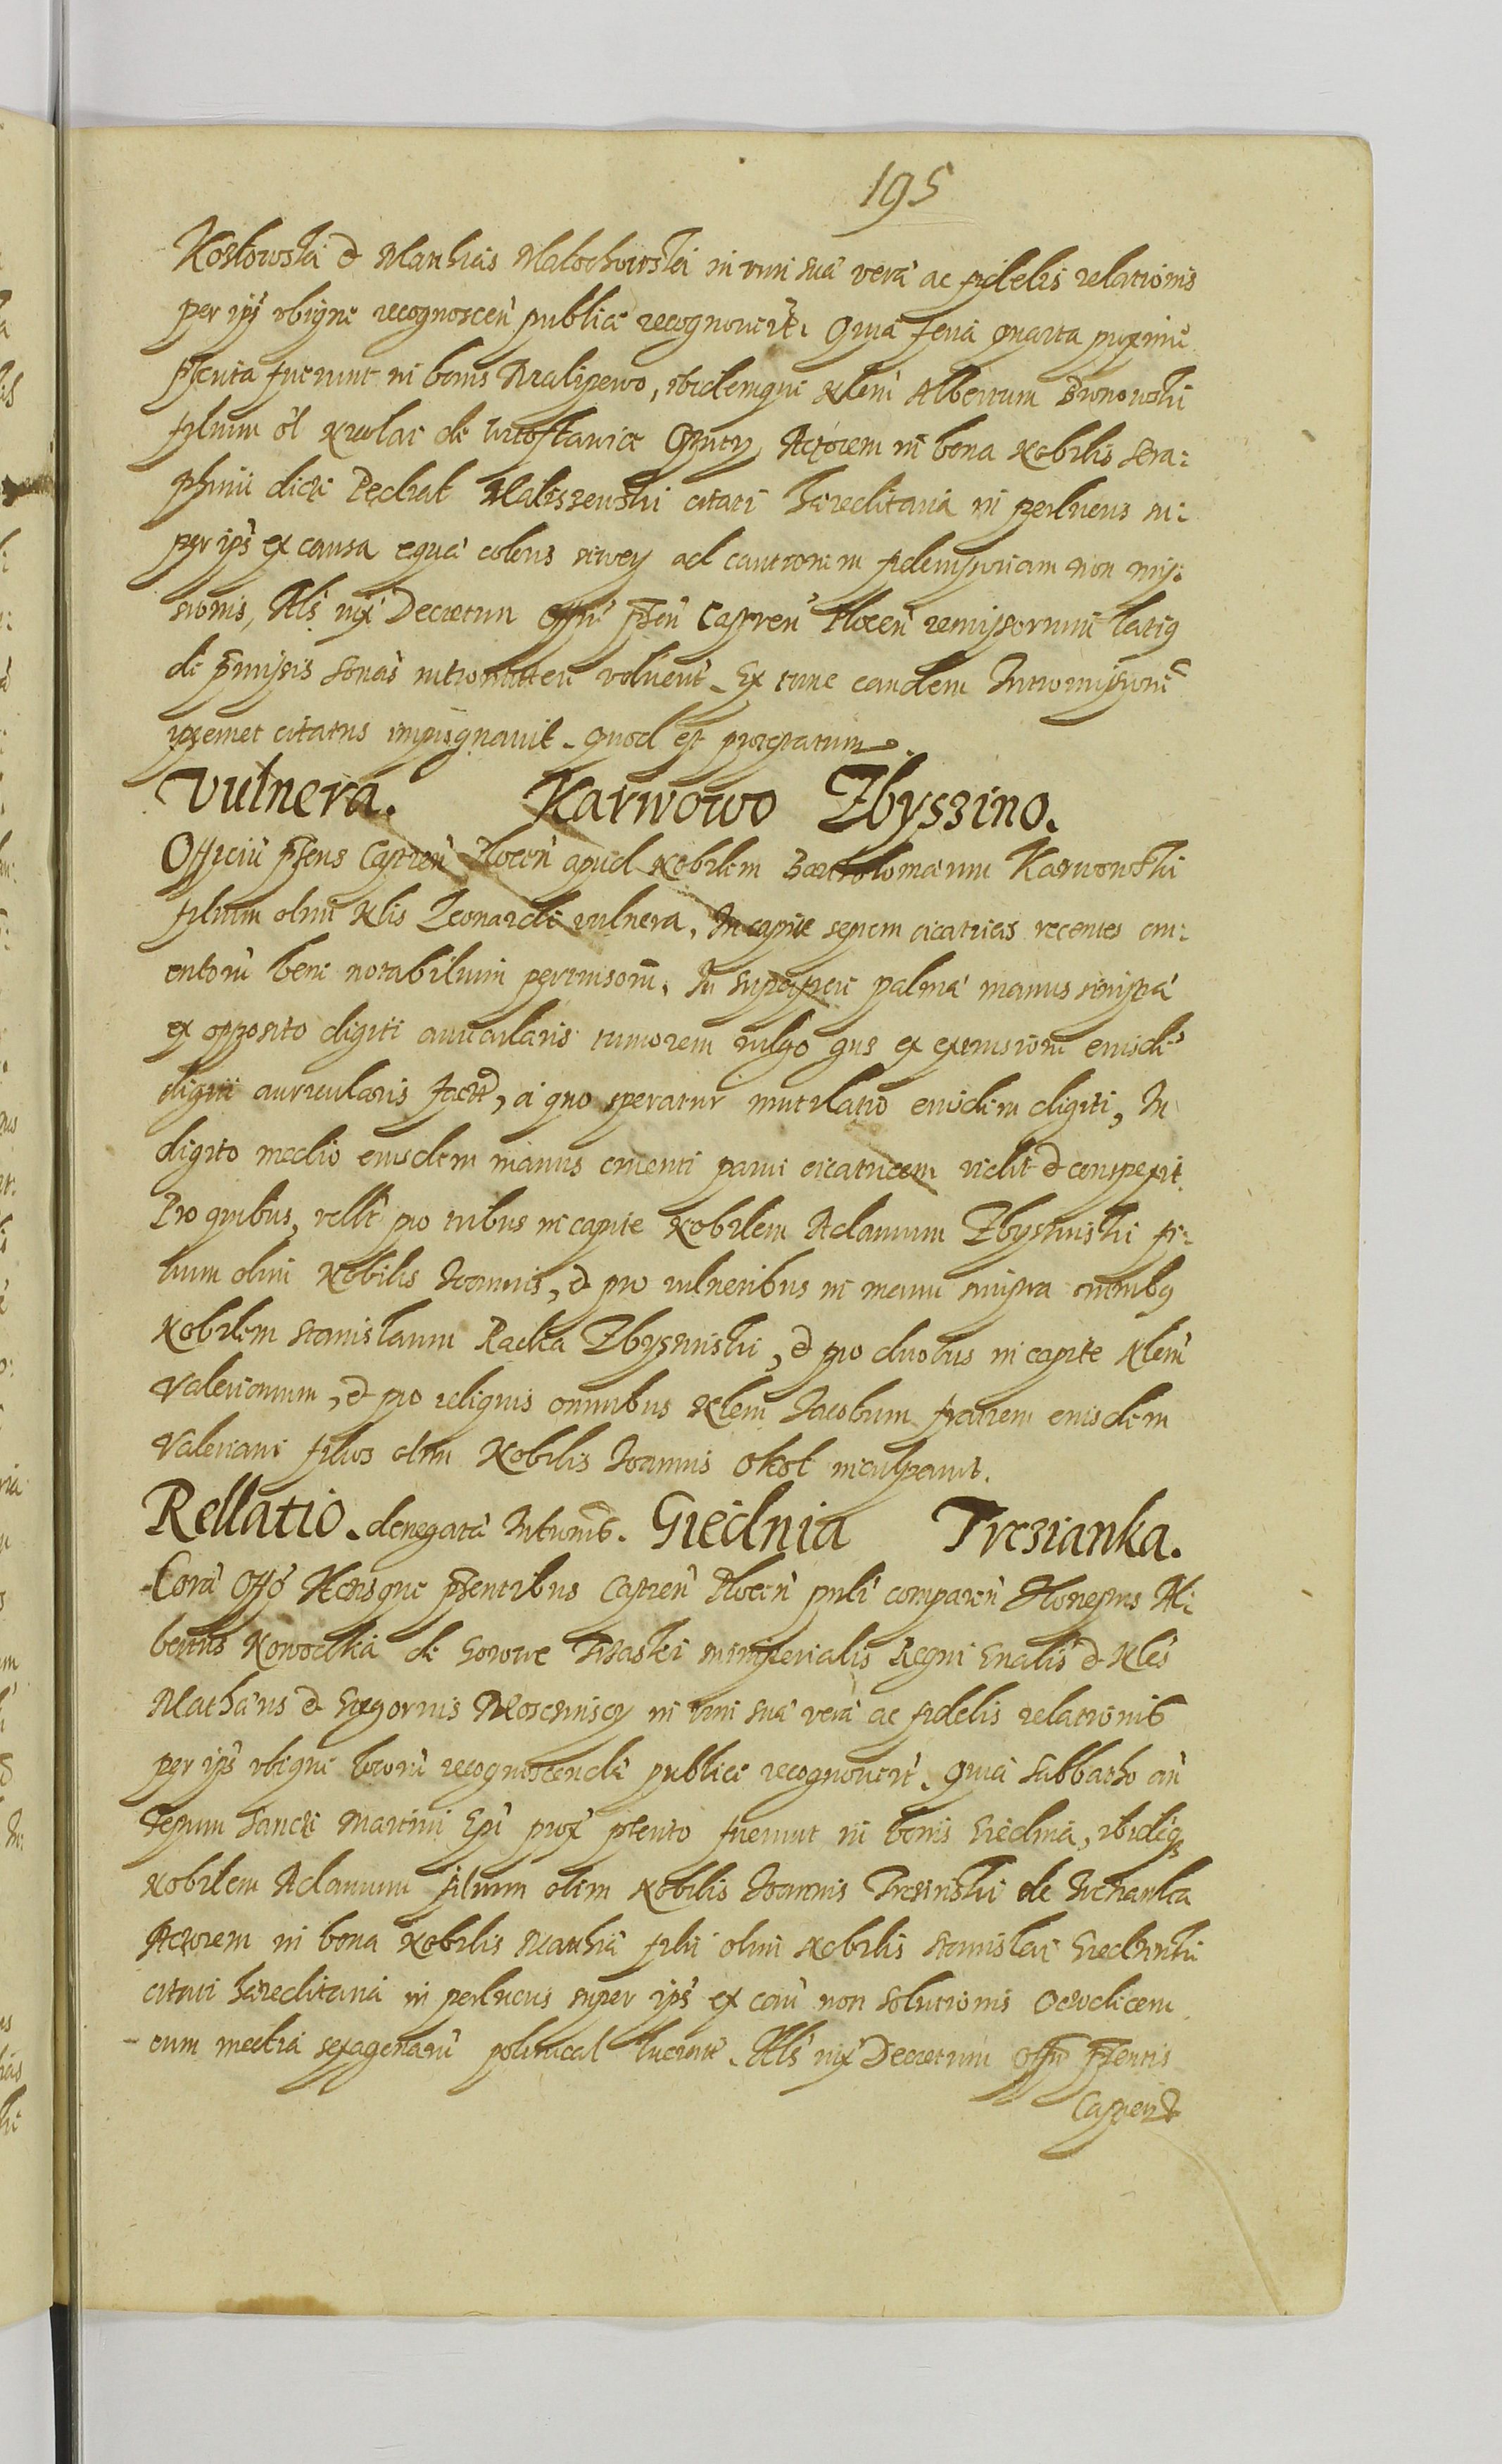 195
Kozłowski & Mathias Malochowski in vim suæ veræ ac fidelis relationis
per ipos ubique recognoscen publice recognoverūt. Quia feria quarta proxime
pñterita fuerunt in bonis Maliszewo, ibidemque Nlem Albertum Bronowski
filium ol Nicolai de Actorem in bona Nobilis Sera:
phini dicti Pechał Maliszewski citati hæreditaria in perlucris su:
per ipo ex causa equæ ad cautionem fideiussoriam non mis:
sionis, Als iuxta Decretum Offii pñtis Castren Plocen remissorium latius
de præmissis sonās intromittere voluerūt. Ex tunc eandem Intromissionē
ipsemet citatus impugnavit. quod est protestatum.
Vulnera. Karwowo Zbyszino.
Officiū pñens Castren Plocen apud Nobilem Bartholomæum Karwowski
filium olim Nlis Leonardi vulnera, In capite septem cicatrices recentes cru:
entorū bene notabilium percussorū. In superficie palmæ manus sinistræ
ex opposito digiti auricularis tumorem vulgo gus ex extrusione eiusdē
digiti auricularis factū, a quo speratur mutilatio eiusdem digiti, In
digito medio eiusdem manus cruenti parvi cicatricem vidit & conspexit.
Pro quibus, vellt pro tribus in capite Nobilem Adamum Zbyszinski fi:
lium olim Nobilis Joannis, & pro vulneribus in manu sinistra omnibus
Nobilem Stanislaum Racka Zbyszinski, & pro duobus in capite Nlem
Valerianum, & pro reliquis omnibus Nlem Jacobum fratrem eiusdem
Valeriani filios olim Nobilis Joannis Okoł inculpavit.
Rellatio. denegatæ Intromis. Giednia Trzianka.
Corā Offo Actisque pñtentibus Castren Plocen psnlr comparen Honestus Al:
bertus Nowoczka de Gorowe Trzaski ministerialis Regni Gnalis & Nles
Mathæus & Grzegorius Moscinisczy in vim suæ veræ ac fidelis relationis
per ipos ubique locorū recognoscendæ publice recognoverūt. quia Sabbatho añ
festum Sancti Martini Epi prox pterito fuerunt in bonis Giednia, ibidēq
Nobilem Adamum filium olim Nobilis Joannis Trzinski de Trzianka
Actorem in bona Nobilis Mathiæ filii olim Nobilis Stanislai Giedzinski
citati hæreditaria in perlucris super ipo ex cau non solutionis Octodecem
cum media sexagenarū polonical lucrate. Als iux Decretum Offii pñtentis
Castren &